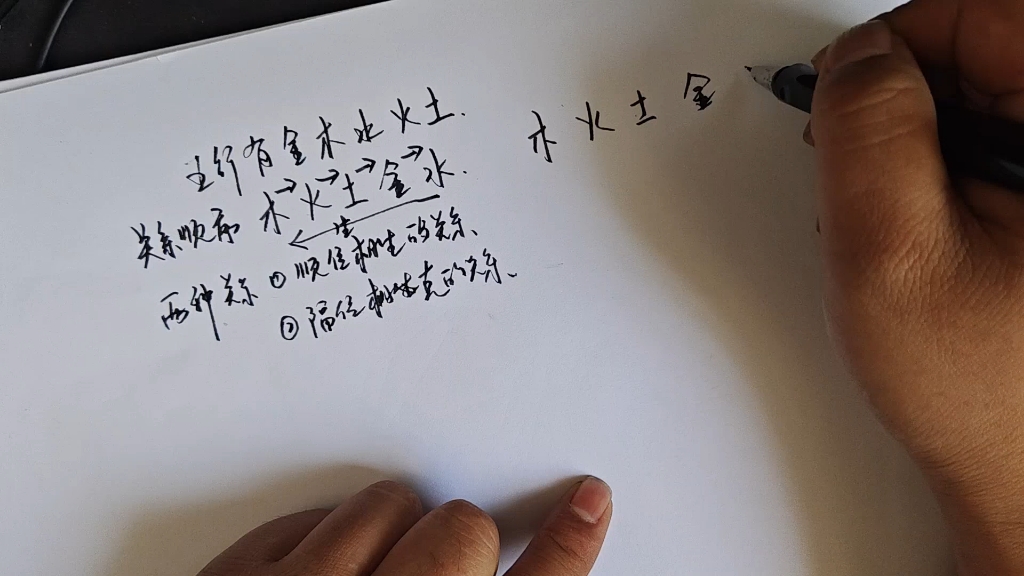 五行有金木水火土.
关系顺序 木→火→土→金→水.
生
两种关系 ① 顺位相生的关系、
② 隔位相克的关系、
木 火 土 金